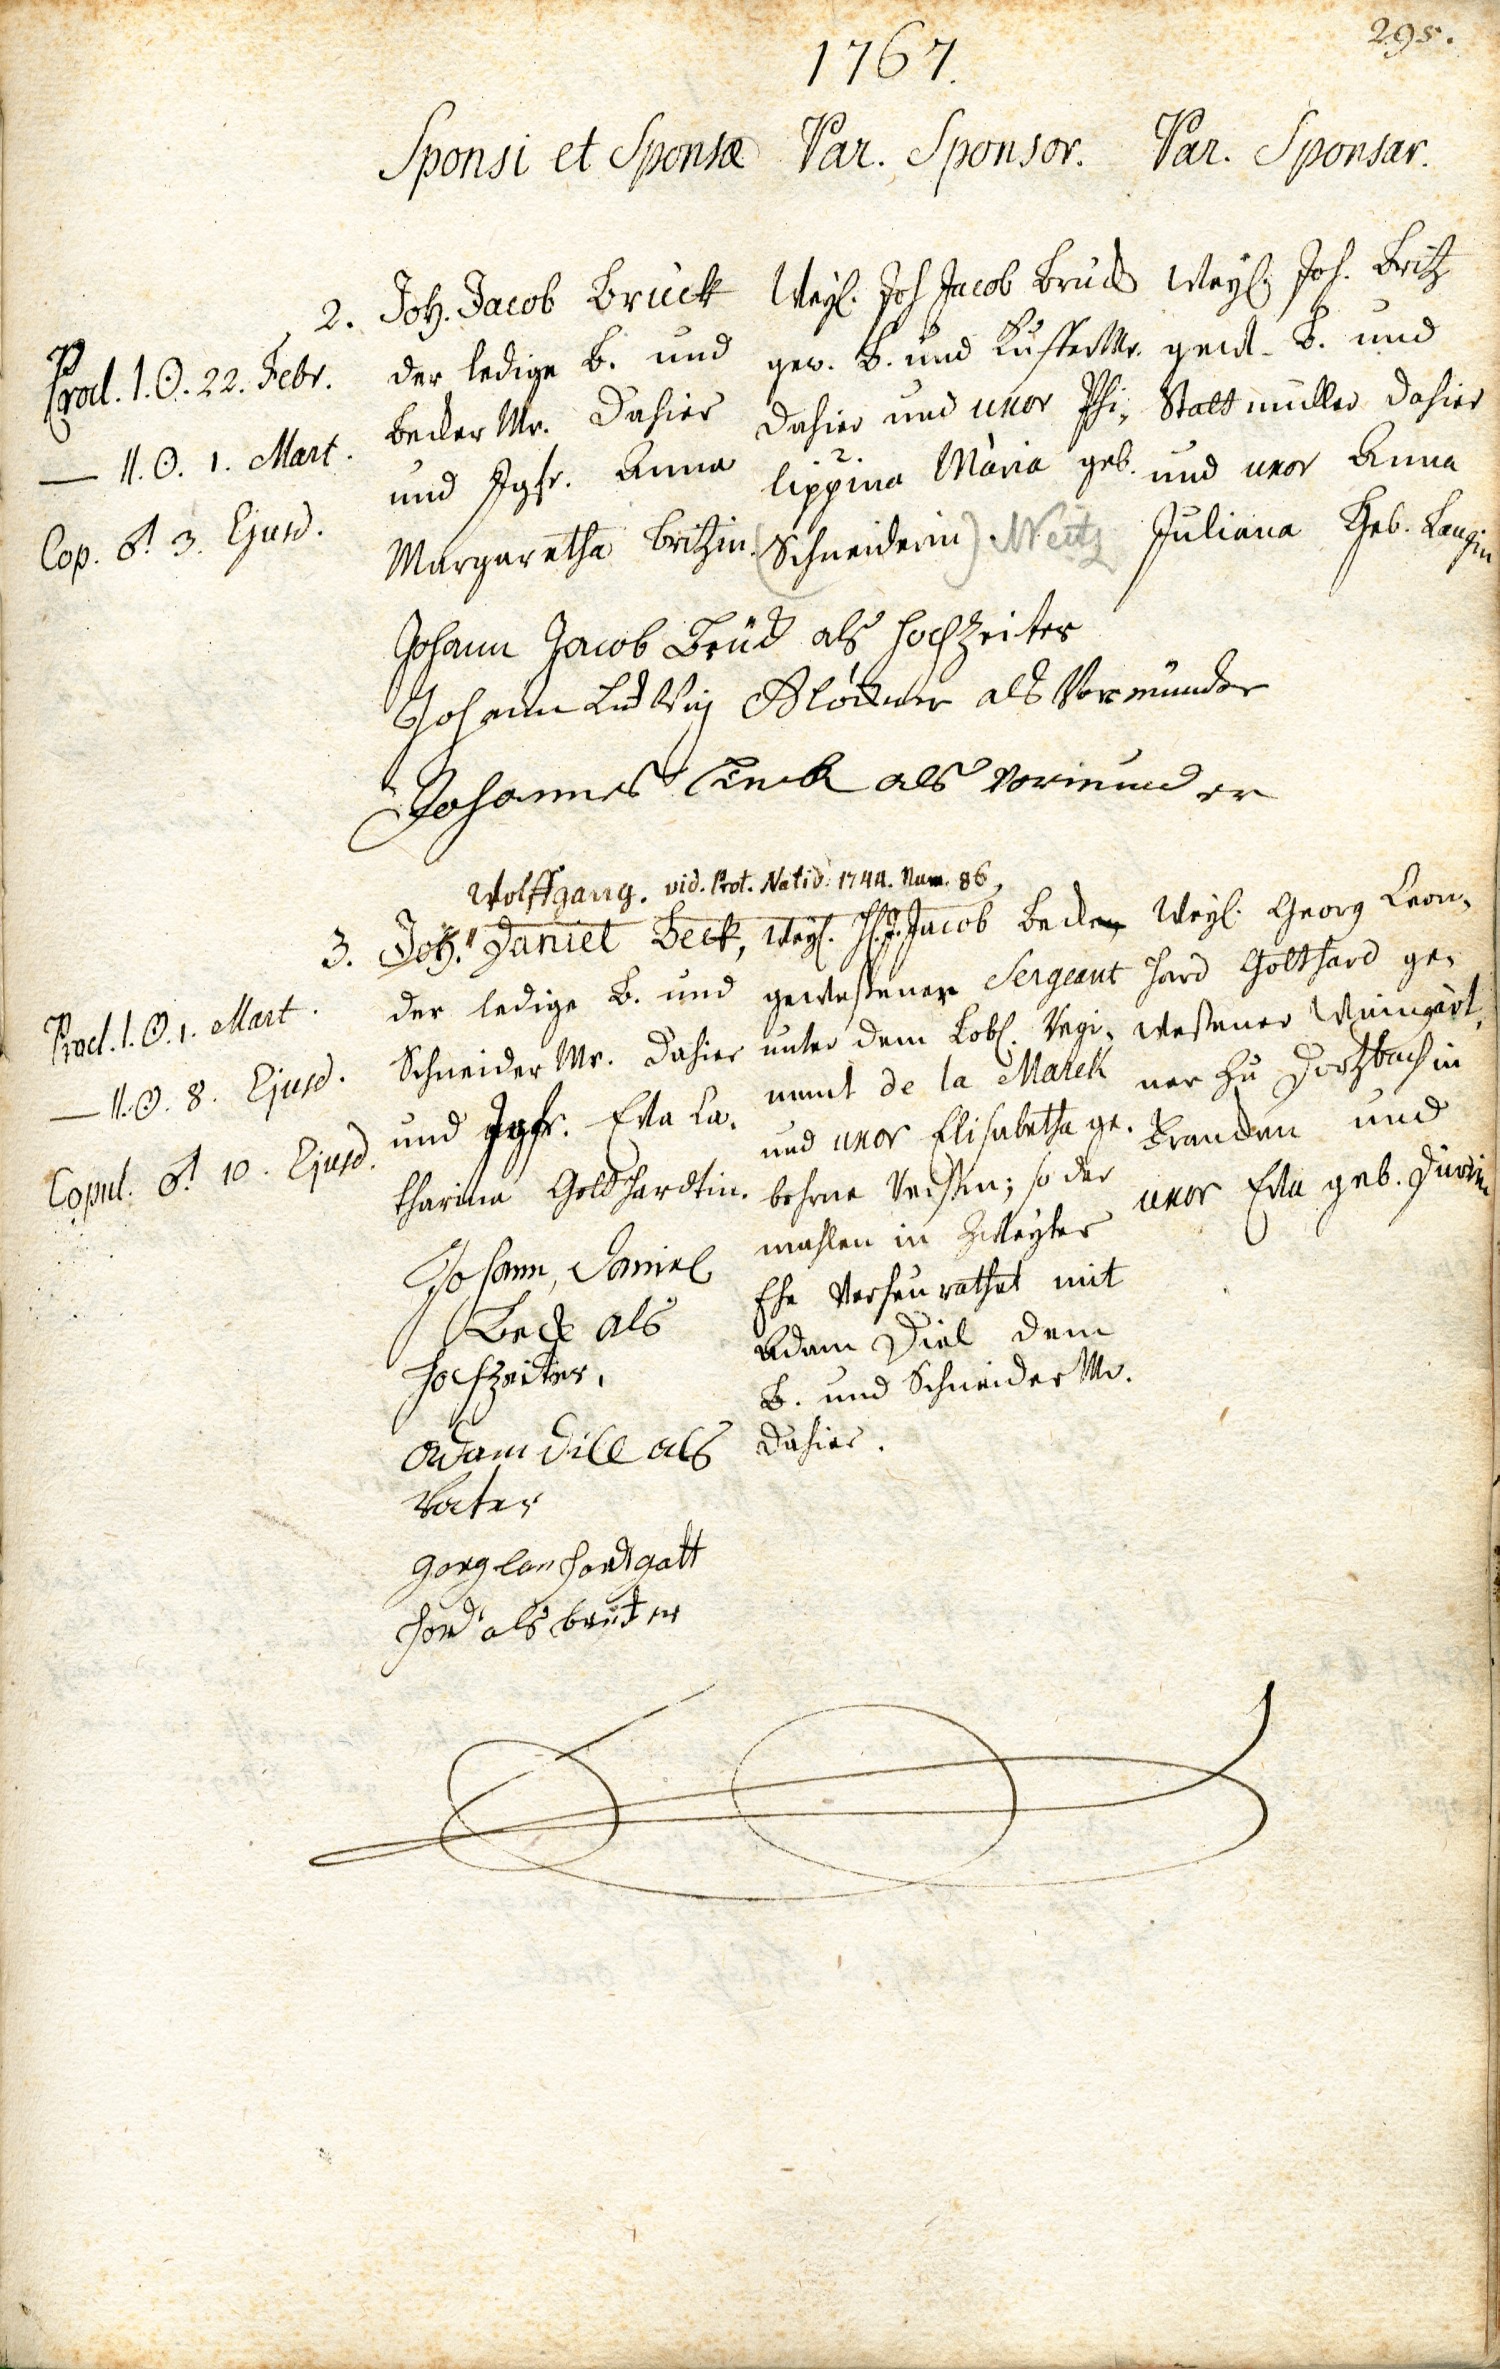 295.
1767.
Sponsi et Sponsæ Par. Sponsor. Par. Sponsar.
Procl. 1. ☉. 22. Febr.
— II. ☉. 1. Mart.
Cop. ♂ 3. Ejusd.
2. Joh. Jacob Bruck
der ledige B. und
Becker Mr. dahier
und Jgfr. Anna
Margaretha Britzin.
Weyl. Joh Jacob Bruck
gew. B. und Kuffer Mr.
dahier und uxor Phi-
lippina Maria geb.
(Schneiderin) Weitz
Weyl. Joh. Britz
gew. B. und
Stattmüller dahier
und uxor Anna
Juliana Geb. Langin
Johann Jacob Brück als Hochzeiter
Johann Ludwig als Vormünder
Johannes als Vormünder
Wolffgang. vid. Prot. Nativ. 1744. Num. 86.
Procl. 1. ☉. 1. Mart.
— II. ☉. 8. Ejusd.
Copul. ♂ 10. Ejusd.
3. Joh. Daniel Beck,
der ledige B. und
Schneider Mr. dahier
und Jgfr. Eva Ca-
tharina Goldhardtin.
Weyl. Jacob Becken
geweßener Sergeant
unter dem Lobl. Regi-
ment de la Marck
und uxor Elisabetha ge-
bohrne; so der
mahlen in Zweyter
Ehe Verheurathet mit
Adam Diel dem
B. und Schneider Mr.
dahier.
Weyl. Georg Leon-
hard Gotthard ge-
weßener Weingärt-
ner zu Dortzbach in
Francken und
uxor Eva geb.
Johann, Daniel
Beck als
Hochzeiter,
Adam Dill als
Vater
Gorg Lonhardt gott
hard als bruder